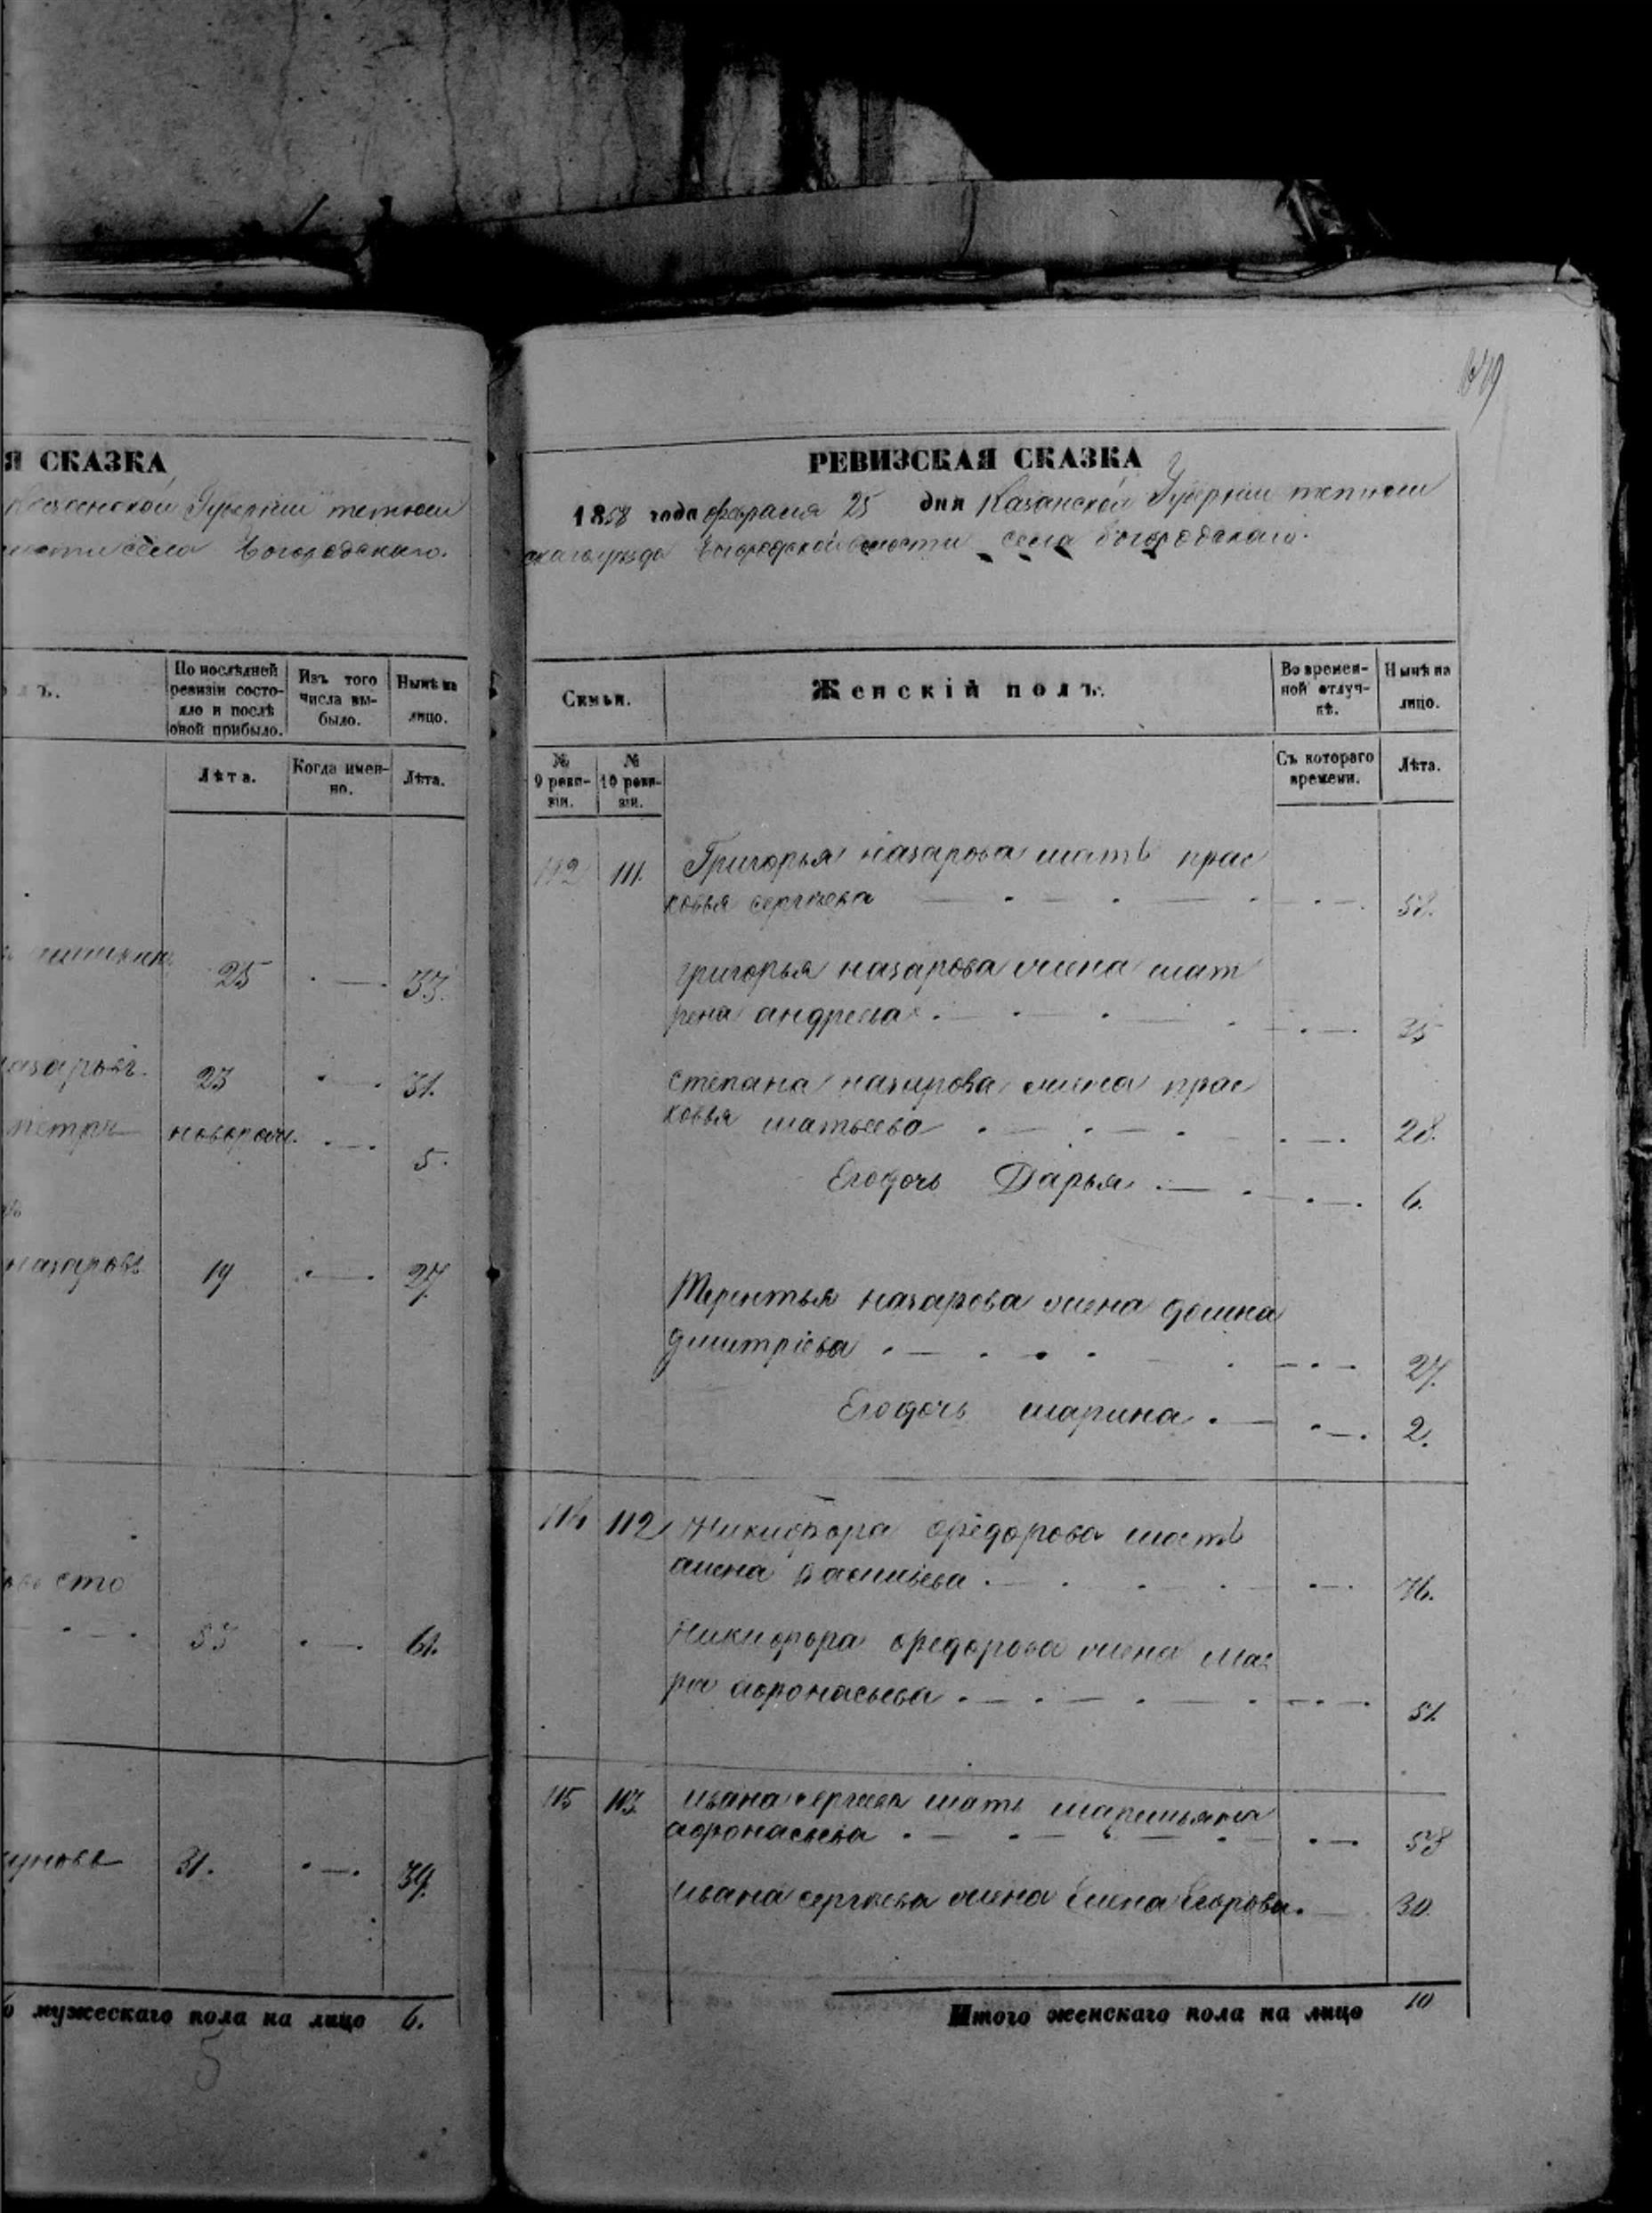 Я СКАЗКА
Казанской Губерніи тетюш
села Богородскаго.
По послѣдней
ревизіи состо-
яло и послѣ
оной прибыло.
Изъ того
числа вы-
было.
Нынѣ на
лицо.
лъ.
Лѣта.
Когда имен-
но.
Лѣта.
25 33.
назарьев 23 31.
петръ новорож. 5.
назаровъ 19 27.
сто
53 61.
31. 39.
мужескаго пола на лицо 6.
5
РЕВИЗСКАЯ СКАЗКА
1858 года февраля 25 дня Казанской Губерніи тетюш
скаго уѣзда Богородской волости села Богородскаго.
Семьи.
Женскій полъ.
Во времен-
ной отлуч-
кѣ.
Нынѣ на
лицо.
№
9 реви-
зіи.
№
10 реви-
зіи.
Съ котораго
времени.
Лѣта.
112 111. Григорья назарова мать прас
ковья сергѣева 58.
григорья назарова жена мат
рена андреева 35
степана назарова жена прас
ковья матвеева 28.
Его дочь Дарья 6.
Терентья назарова жена домна
дмитріева 27.
Его дочь марина 2.
114 112 Никифора федорова мать
анна васильева 76.
Никифора федорова жена мав
ра афонасьева 51.
115 113. ивана сергеева мать маремьяна
афонасьева 58
ивана сергѣева жена Елена Егорова 30.
Итого женскаго пола на лицо 10